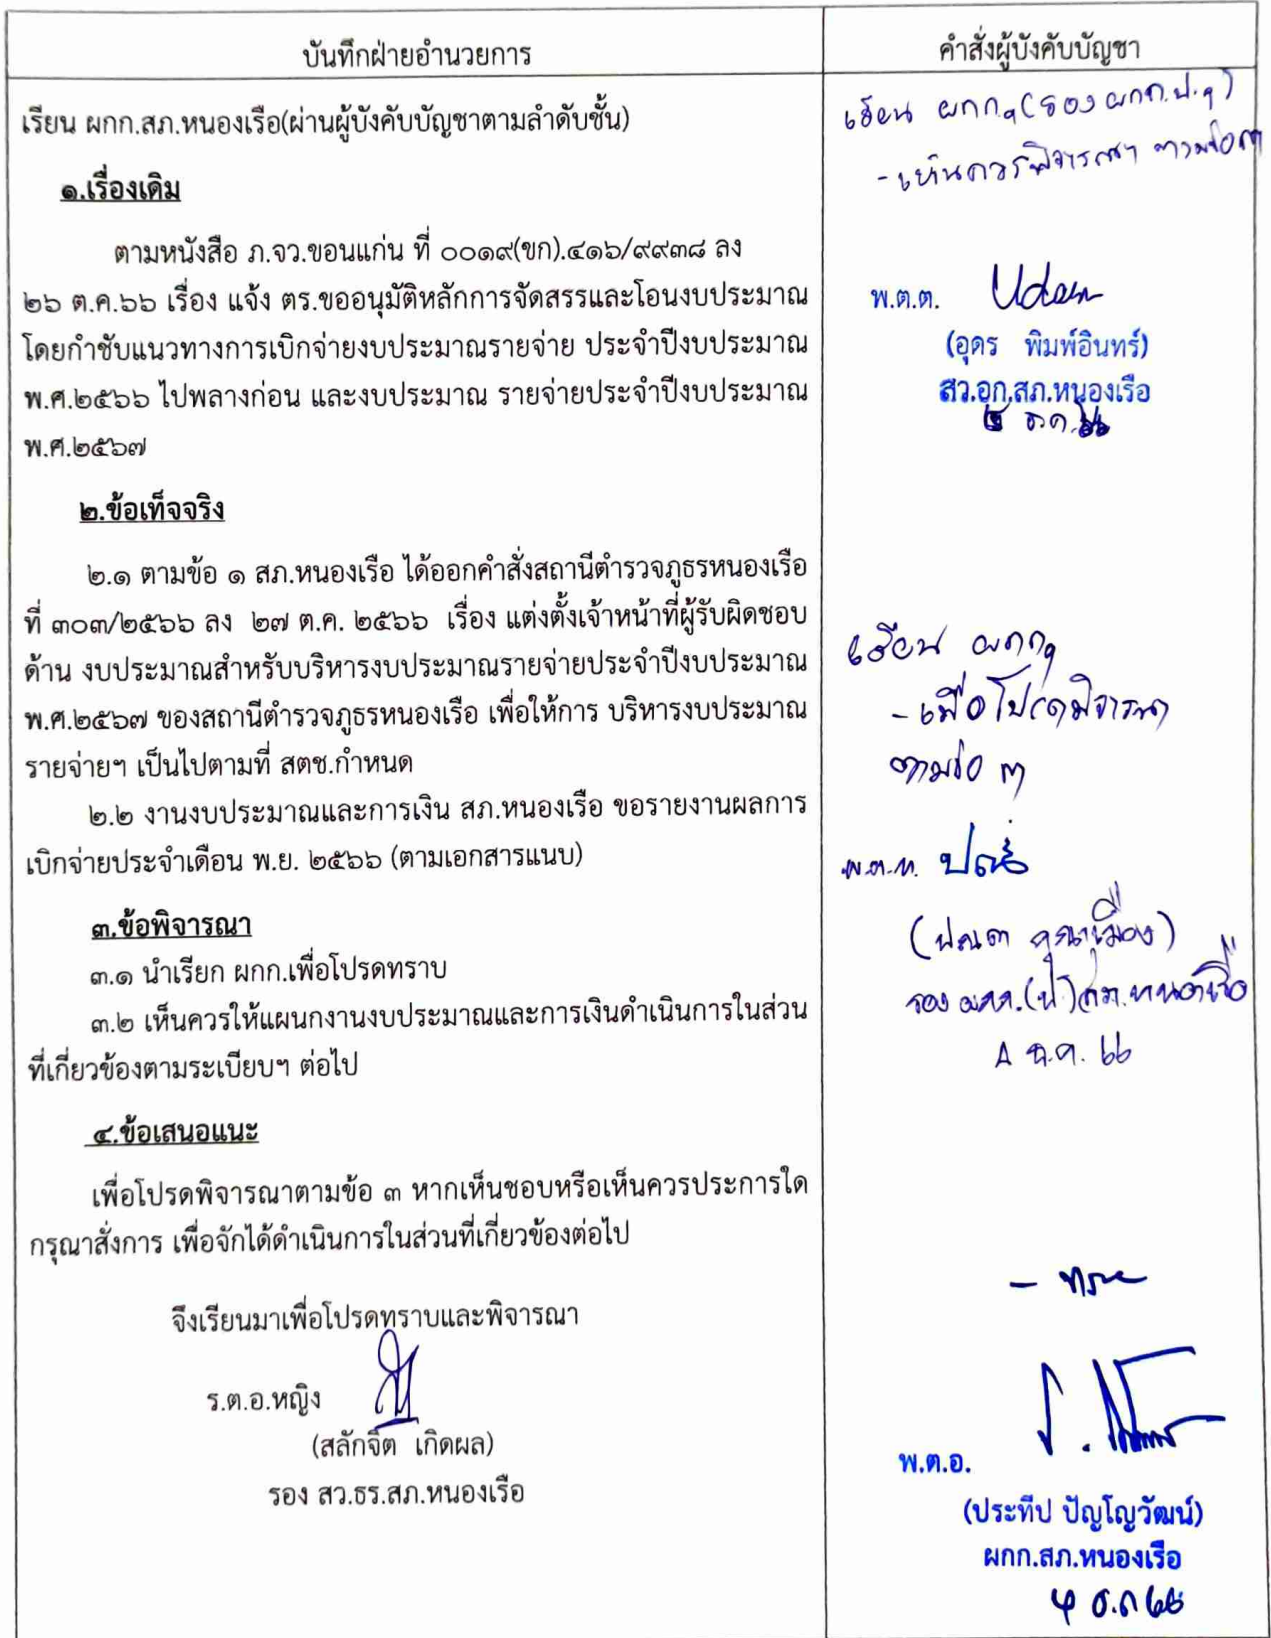 บันทึกฝ่ายอำนวยการ
เรียน ผกก.สภ.หนองเรือ(ผ่านผู้บังคับบัญชาตามลำดับชั้น)
๑.เรื่องเดิม
ตามหนังสือ ภ.จว.ขอนแก่น ที่ ๐๐๑๙(ขก).๔๑๖/๙๙๓๘ ลง
๒๖ ต.ค.๖๖ เรื่อง แจ้ง ตร.ขออนุมัติหลักการจัดสรรและโอนงบประมาณ
โดยกำชับแนวทางการเบิกจ่ายงบประมาณรายจ่าย ประจำปีงบประมาณ
พ.ศ.๒๕๖๖ ไปพลางก่อน และงบประมาณ รายจ่ายประจำปีงบประมาณ
พ.ศ.๒๕๖๗
๒.ข้อเท็จจริง
๒.๑ ตามข้อ ๑ สภ.หนองเรือ ได้ออกคำสั่งสถานีตำรวจภูธรหนองเรือ
ที่ ๓๐๓/๒๕๖๖ ลง ๒๗ ต.ค. ๒๕๖๖ เรื่อง แต่งตั้งเจ้าหน้าที่ผู้รับผิดชอบ
ด้าน งบประมาณสำหรับบริหารงบประมาณรายจ่ายประจำปีงบประมาณ
พ.ศ.๒๕๖๗ ของสถานีตำรวจภูธรหนองเรือ เพื่อให้การ บริหารงบประมาณ
รายจ่ายฯ เป็นไปตามที่ สตช.กำหนด
๒.๒ งานงบประมาณและการเงิน สภ.หนองเรือ ขอรายงานผลการ
เบิกจ่ายประจำเดือน พ.ย. ๒๕๖๖ (ตามเอกสารแนบ)
๓.ข้อพิจารณา
๓.๑ นำเรียก ผกก.เพื่อโปรดทราบ
๓.๒ เห็นควรให้แผนกงานงบประมาณและการเงินดำเนินการในส่วน
ที่เกี่ยวข้องตามระเบียบฯ ต่อไป
๔.ข้อเสนอแนะ
เพื่อโปรดพิจารณาตามข้อ ๓ หากเห็นชอบหรือเห็นควรประการใด
กรุณาสั่งการ เพื่อจักได้ดำเนินการในส่วนที่เกี่ยวข้องต่อไป
จึงเรียนมาเพื่อโปรดทราบและพิจารณา
ร.ต.อ.หญิง
(สลักจิต เกิดผล)
รอง สว.ธร.สภ.หนองเรือ
คำสั่งผู้บังคับบัญชา
เรียน ผกก.ฯ (รอง ผกก.ป.ฯ)
- เห็นควรพิจารณา ตามข้อ ๓
พ.ต.ต. Udorn
(อุดร พิมพ์อินทร์)
สว.อก.สภ.หนองเรือ
ธ.ค. ๖๖
เรียน ผกกฯ
- เพื่อโปรดพิจารณา
ตามข้อ ๓
พ.ต.ท.
รอง ผกก.(ป.)สภ.หนองเรือ
ธ.ค. ๖๖
- ทราบ
พ.ต.อ.
(ประทีป ปัญโญวัฒน์)
ผกก.สภ.หนองเรือ
ธ.ค ๖๖